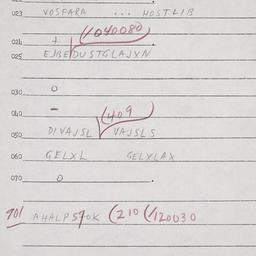 023 VOSFARA ... HOSTLIB
(1040080
024 +
025 EJBEDUSTGLAJXN
030 0
040 - (409
050 DIVAJSL VAJSLS
060 GELXL GELXLAX
070 0 .
701 AHALPSTOK (210 (1120030